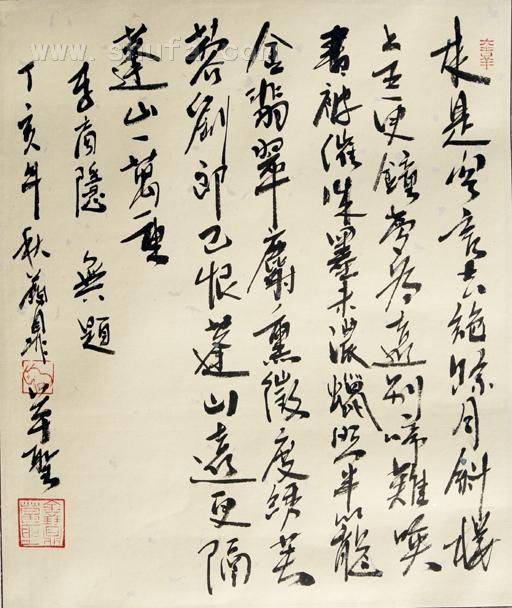 來是空言去絶踪月斜樓
上五更鐘夢為遠别啼難唤
書被催成墨未濃蠟照半籠
金翡翠麝熏微度綉芙
蓉劉郎已恨蓬山遠更隔
蓬山一萬重
李商隱 無題
丁亥年秋